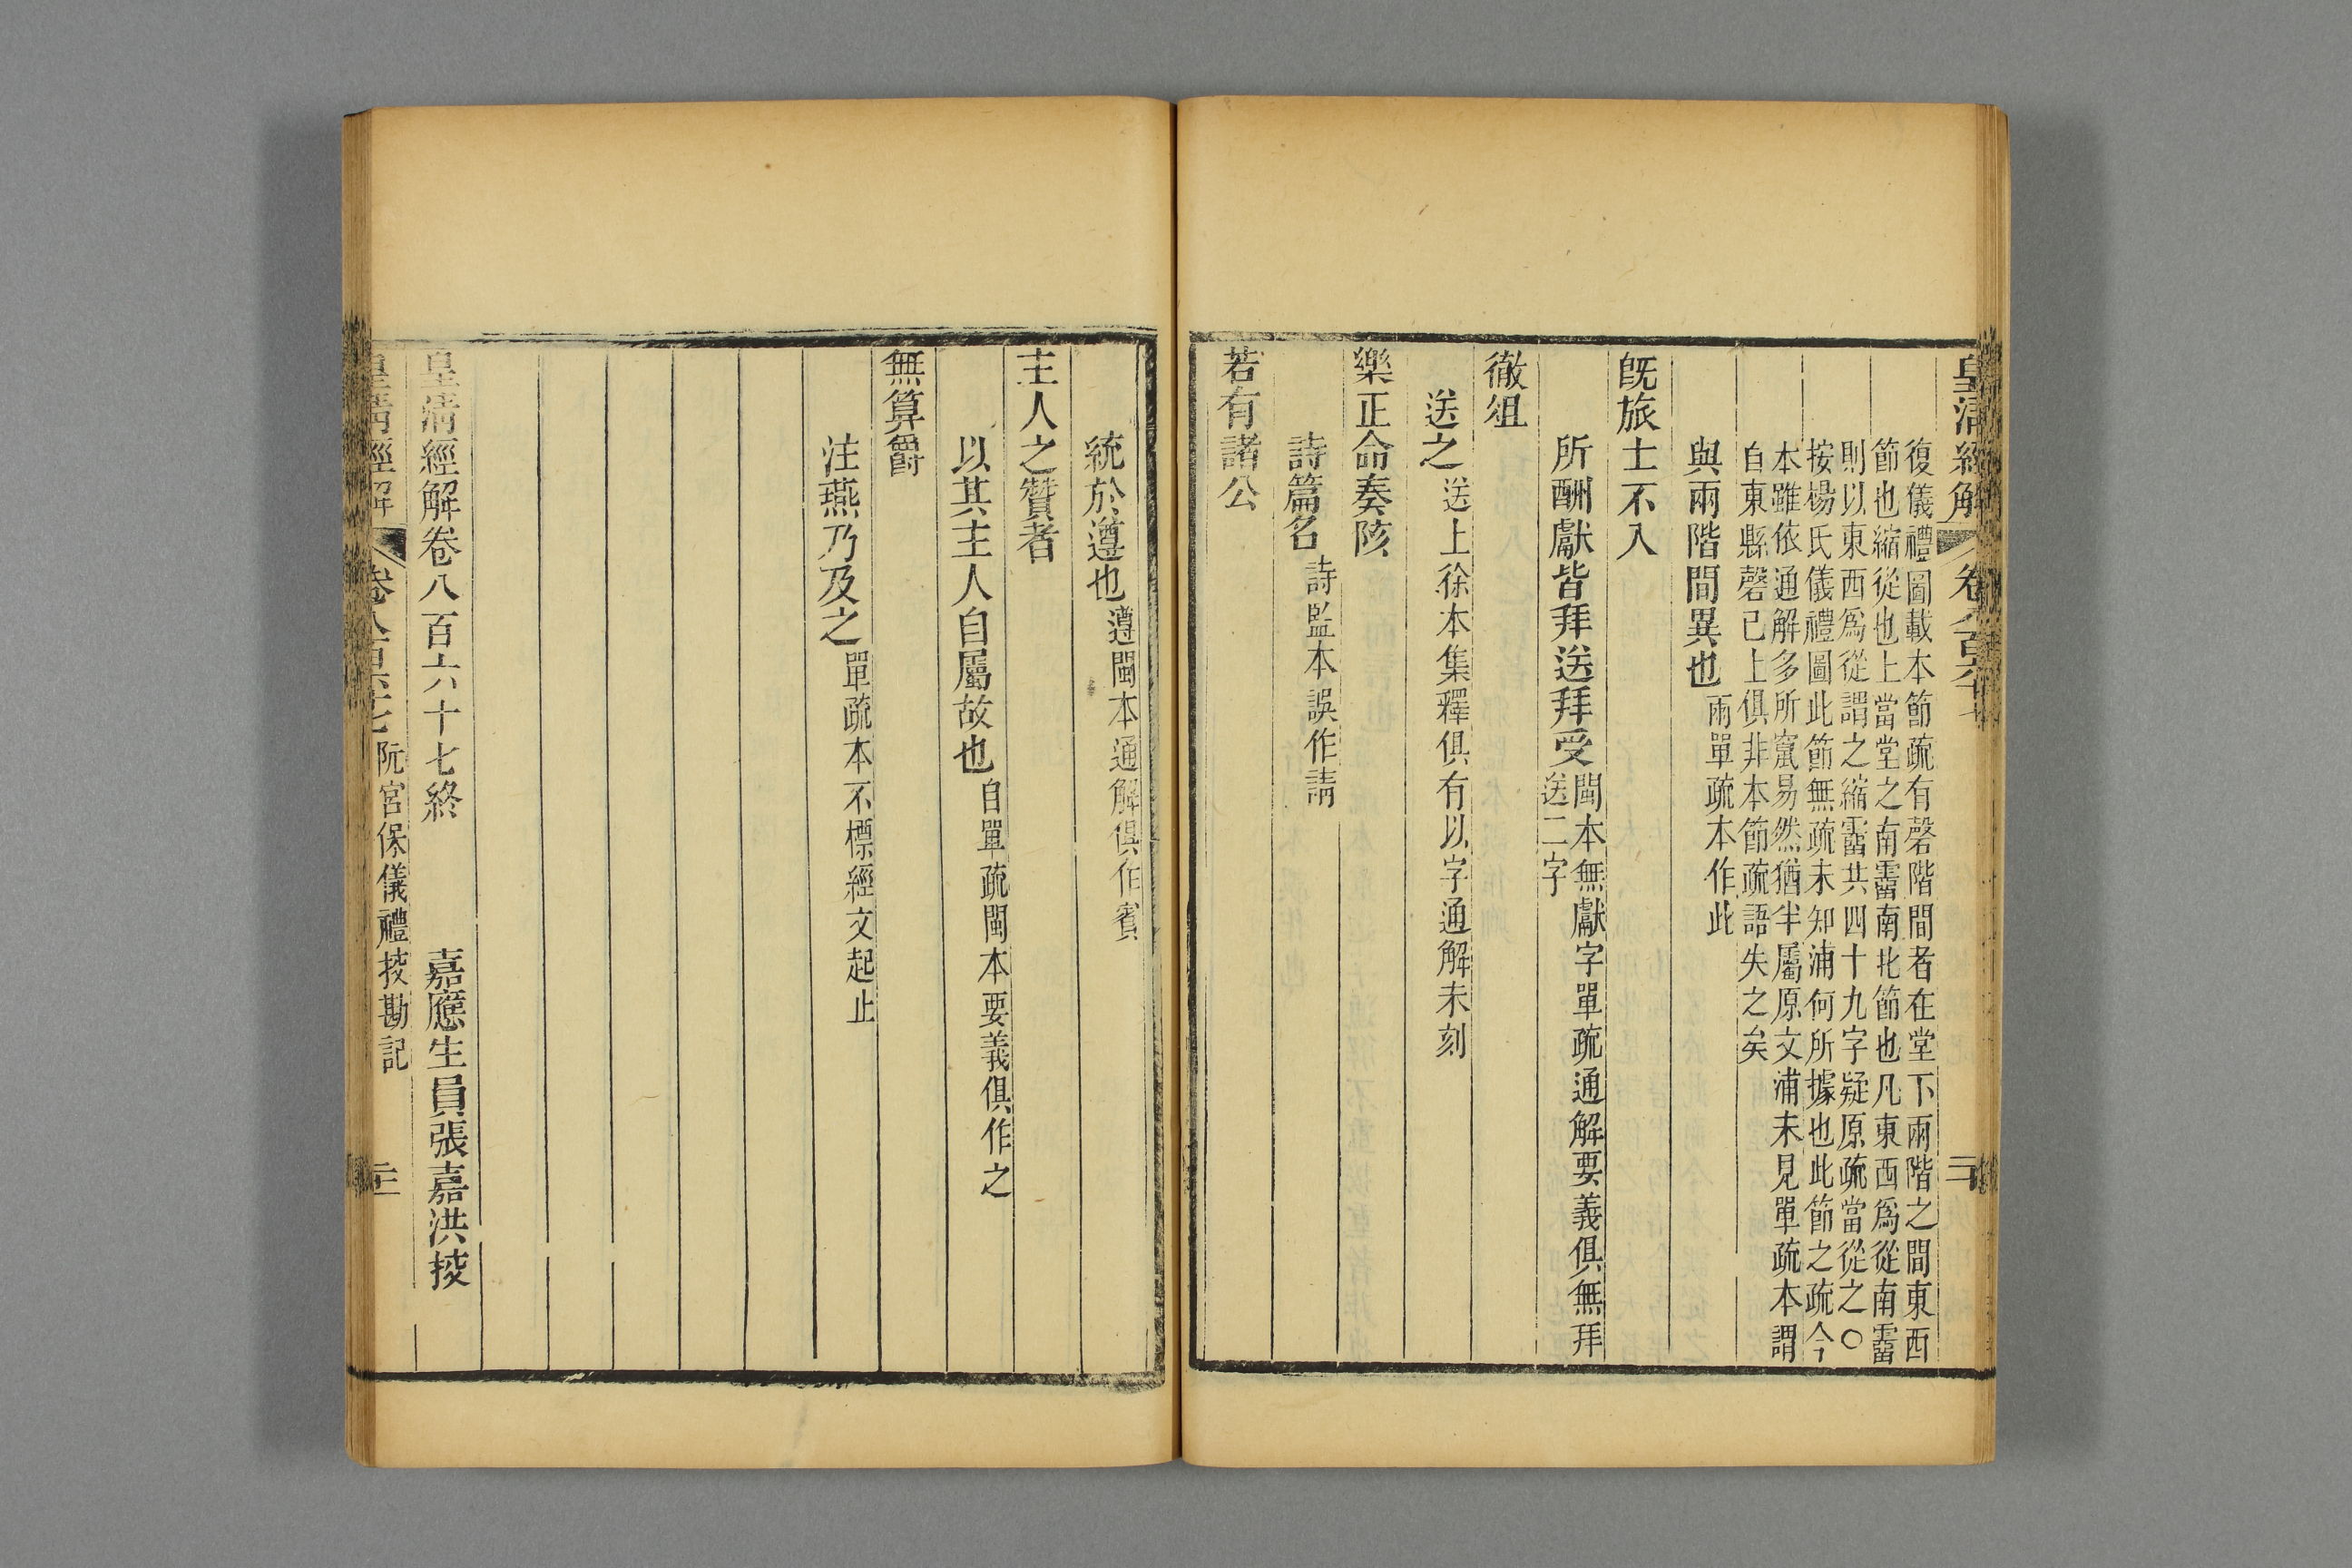 皇清經解 卷八百六十七 二十
復儀禮圖載本節疏有磬階間者在堂下兩階之間東西
節也縮從也上當堂之南霤南北節也凡東西爲從南霤
則以東西爲從謂之縮霤共四十九字疑原疏當從之〇
按楊氏儀禮圖此節無疏未知浦何所據也此節之疏今
本雖依通解多所竄易然猶半屬原文浦未見單疏本謂
自東縣磬已上俱非本節疏語失之矣
與兩階間異也兩單疏本作此
旣旅士不入
所酬獻皆拜送拜受閩本無獻字單疏通解要義俱無拜
送二字
徹俎
送之送上徐本集釋俱有以字通解未刻
樂正命奏陔
詩篇名詩監本誤作請
若有諸公
統於遵也遵閩本通解俱作賓
主人之贊者
以其主人自屬故也自單疏閩本要義俱作之
無算爵
注燕乃及之單疏本不標經文起止
皇清經解卷八百六十七終 嘉應生員張嘉洪挍
皇清經解 卷八百六十七 阮宮保儀禮挍勘記